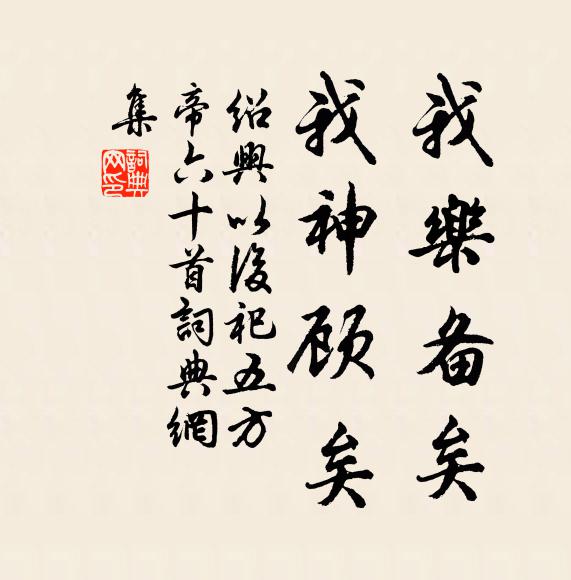 我樂备矣
我神顾矣
紹興以後祀五方
帝六十首詞典網
集
詞典网印